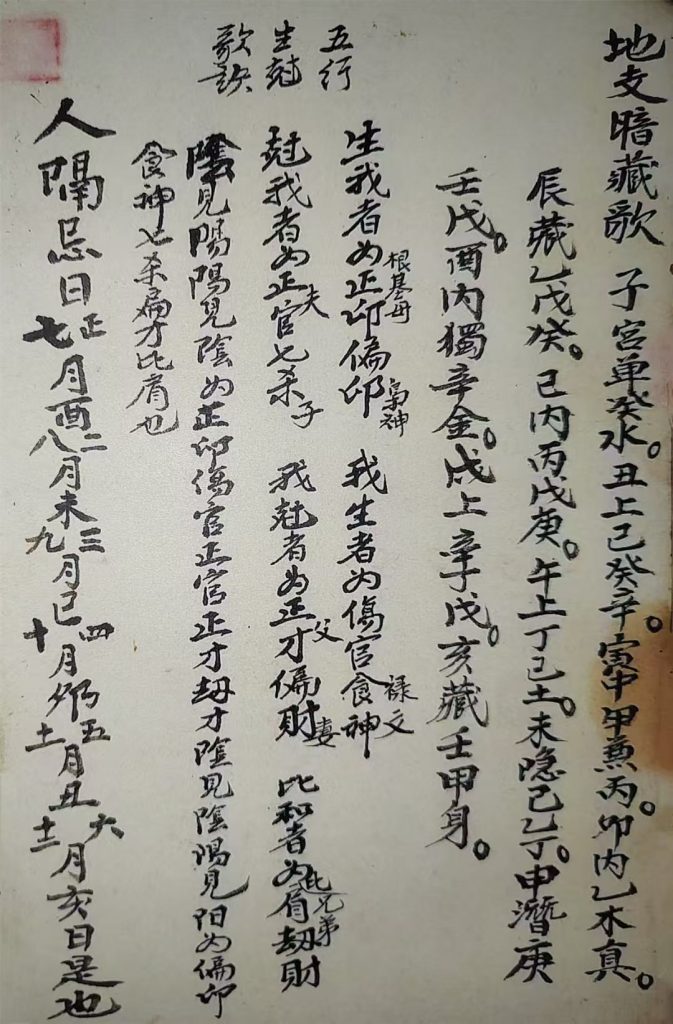 地支暗藏歌 子宮单癸水。丑上己癸辛。寅中甲兼丙。卯内乙木真。
辰藏乙戊癸。巳内丙戊庚。午上丁己土。未隐己乙丁。申潛庚
壬戊。酉内獨辛金。戌上辛丁戊。亥藏壬甲身。
五行
生尅
歌訣
生我者为正印偏印 我生者为傷官食神
根基母 梟神 禄文
尅我者为正官七杀 我尅者为正才偏財 比和者为肩劫財
夫 子 父 妻 比兄弟
陰見陽陽見陰为正印傷官正官正才劫才陰見陰陽見阳为偏印
食神七杀扁才比肩也
人隔忌日 正七月酉 二八月未 三九月巳 四十月夘 五十一月丑 六十二月亥日是也